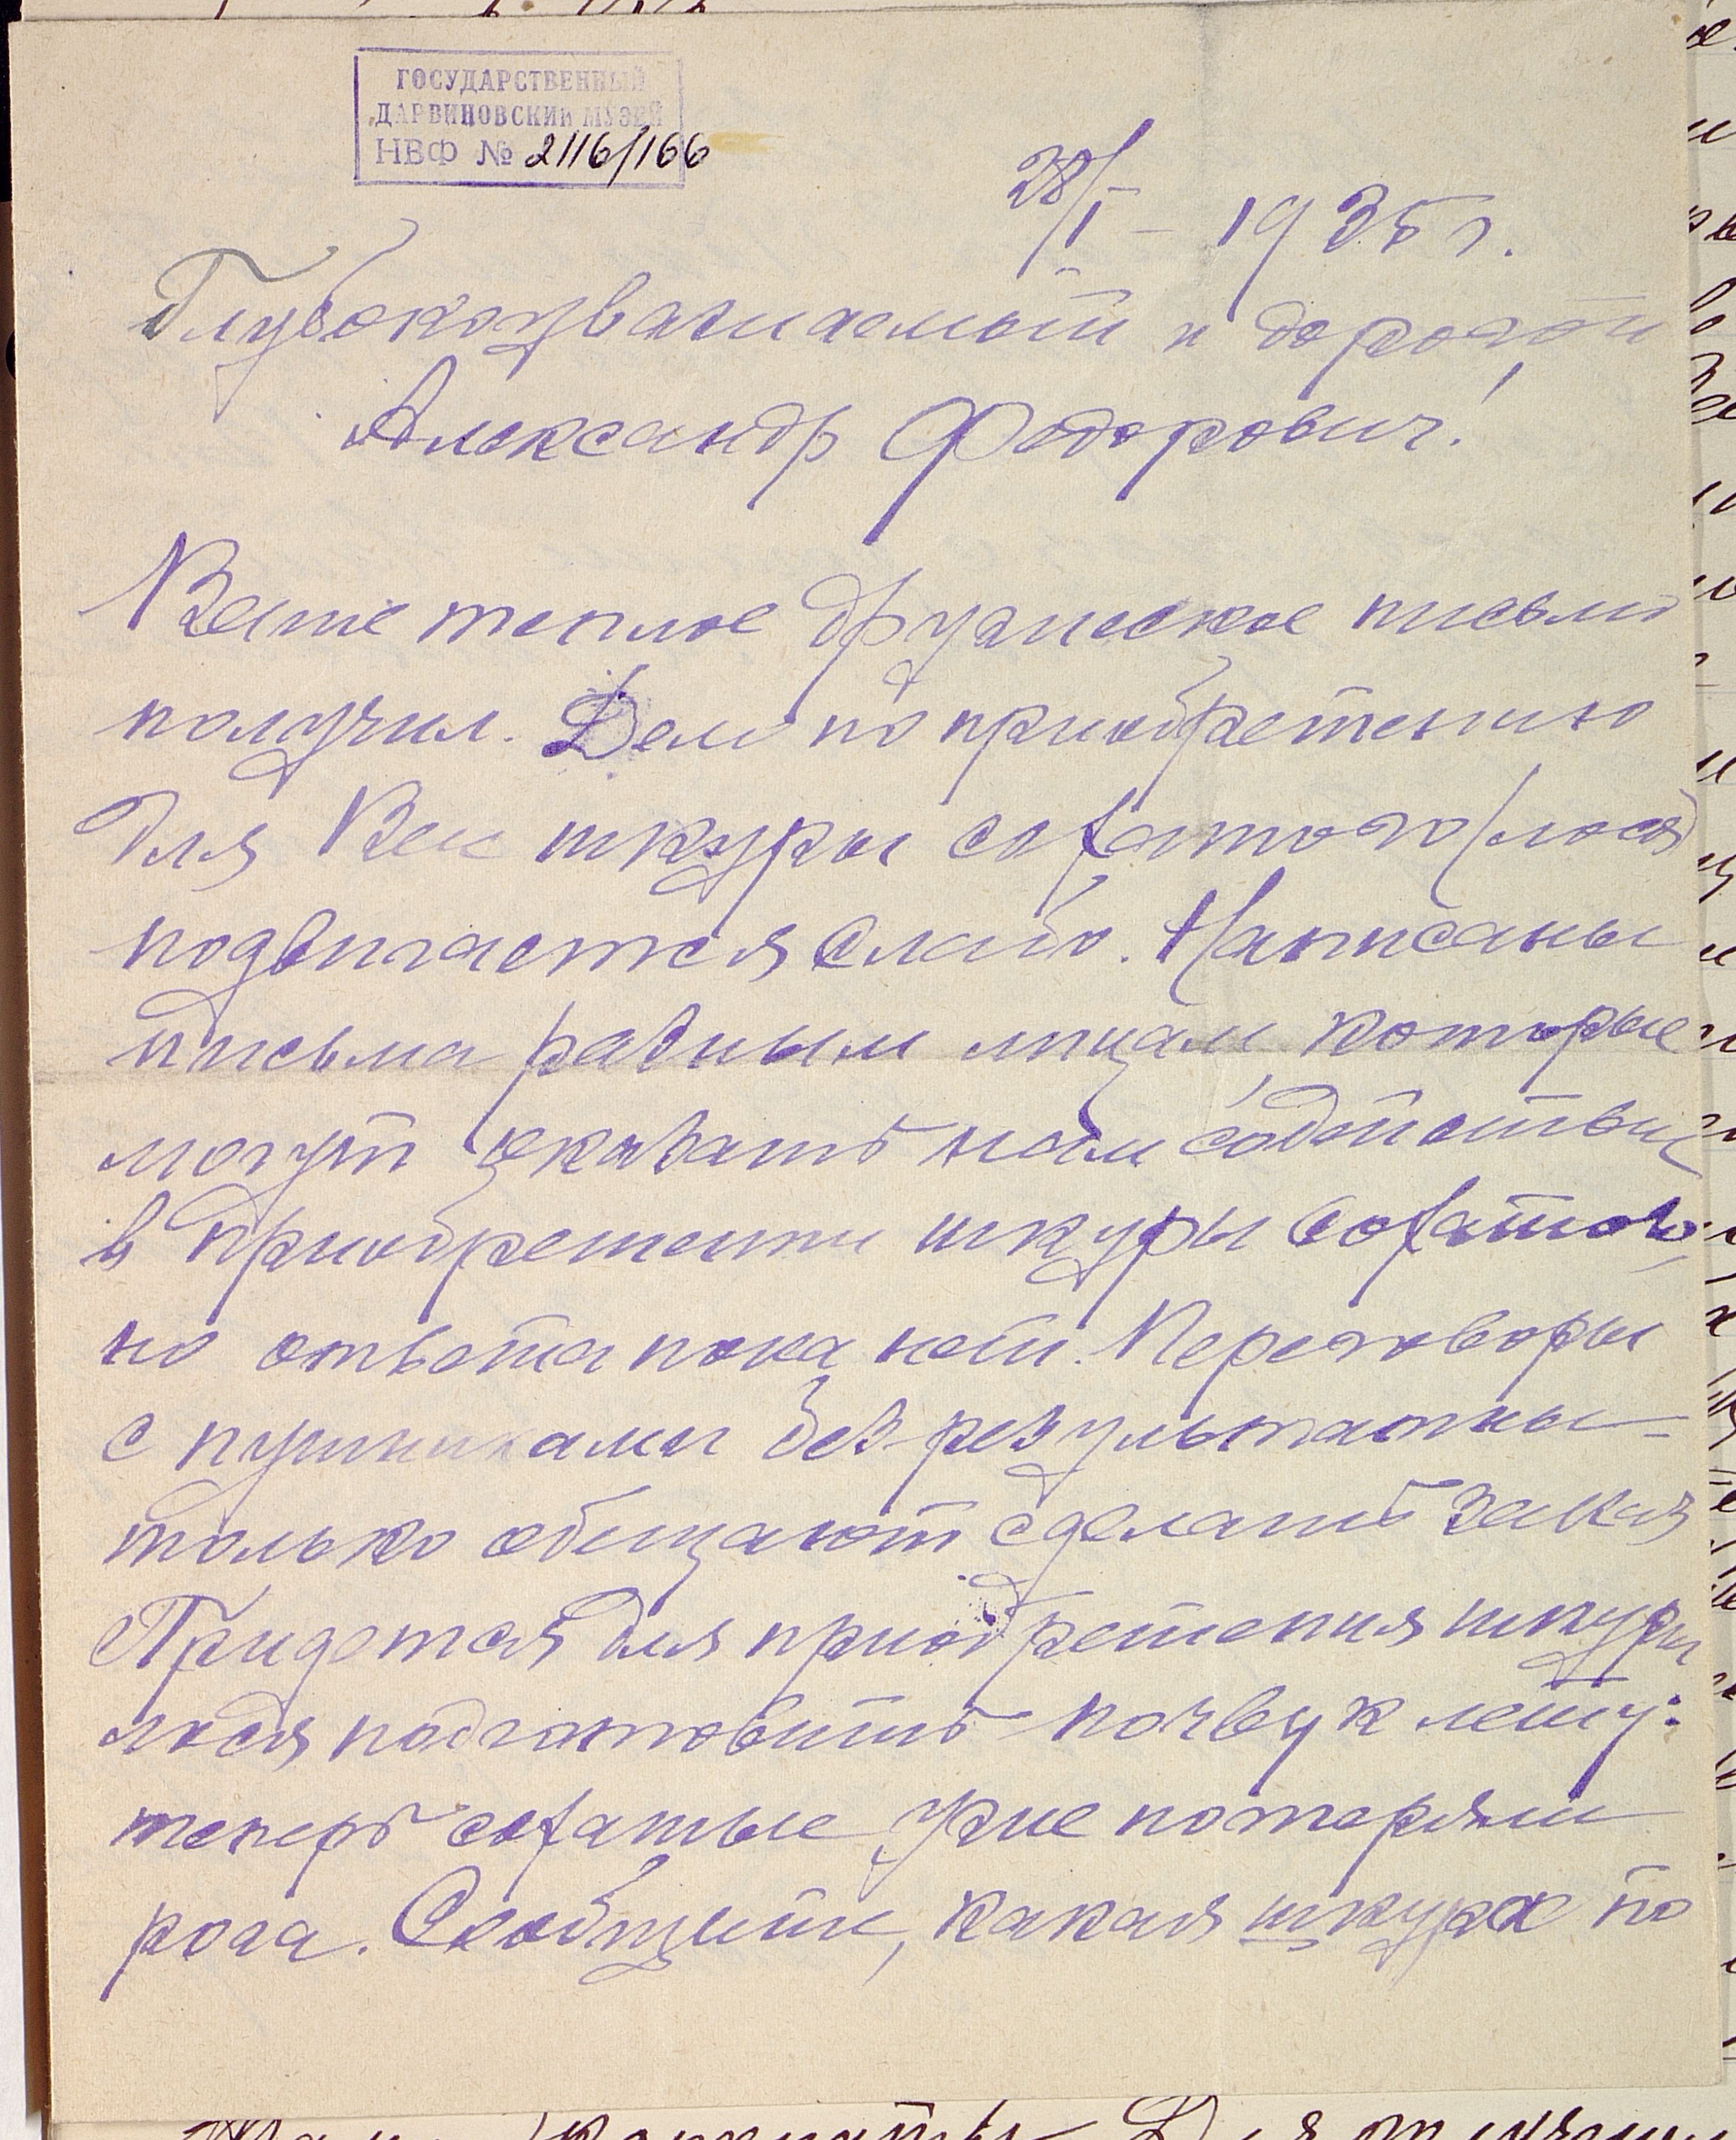 ГОСУДАРСТВЕННЫЙ
ДАРВИНОВСКИЙ МУЗЕЙ
НВФ № 2116/166
28/I – 1935 г.
Глубокоуважаемый и дорогой
Александр Федорович!
Ваше теплое дружеское письмо
получил. Дело по приобретению
для Вас шкуры сохатого (лося)
подвигается слабо. Написаны
письма разным лицам которые
могут оказать нам содействие
в приобретении шкуры сохатого,
но ответа пока нет. Переговоры
с пушниками без результатны –
только обещают сделать заказ
Придется для приобретения шкуры
лося подготовить почву к лету:
теперь сохатые уже потеряли
рога. Сообщите, какая шкура по